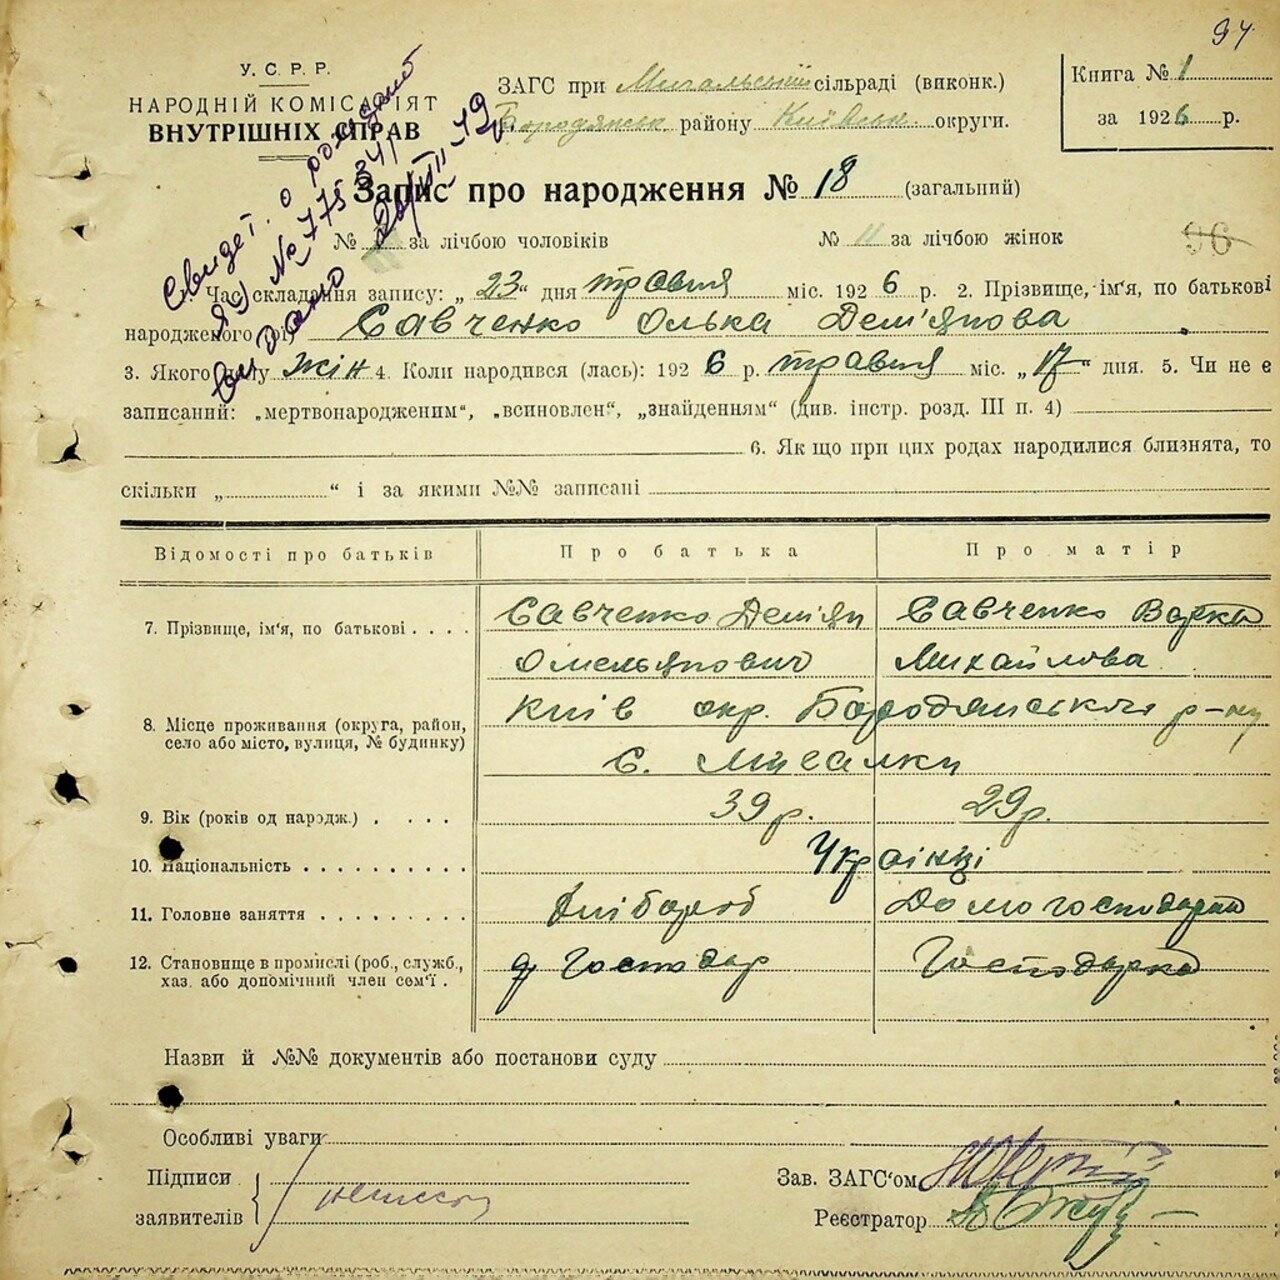 94
У. С. Р. Р.
НАРОДНІЙ КОМІСАРІЯТ
ВНУТРІШНІХ СПРАВ
ЗАГС при Мигальській сільраді (виконк.)
Бородянськ району Київськ. округи.
Книга № 1
за 1926 р.
Свидет. о рождении
ЯЭ № 775341
выдано
Запис про народження № 18 (загальний)
№ за лічбою чоловіків № 11 за лічбою жінок
96
Час складання запису: „ 23 “ дня травня міс. 1926 р. 2. Прізвище, ім'я, по батькові
народженого Савченко Олька Дем'янова
3. Якого полу жін 4. Коли народився (лась): 1926 р. травня міс. „ 17 “ дня. 5. Чи не є
записаний: „мертвонародженим“, „всиновлен“, „знайденням“ (див. інстр. розд. III п. 4)
6. Як що при цих родах народилися близнята, то
скільки „ “ і за якими №№ записані
Відомості про батьків Про батька Про матір
7. Прізвище, ім'я, по батькові . . . . Савченко Дем'ян Савченко Варка
Омельянович Михайлова
8. Місце проживання (округа, район, село або місто, вулиця, № будинку) Київ окр. Бородянського р-ну
с. Мигалки
9. Вік (років од народж.) . . . . 39 р. 29 р.
10. Національність . . . . . . . . . . Українці
11. Головне заняття . . . . . . . . . Хлібороб Домогосподарка
12. Становище в промислі (роб., служб., хаз. або допомічний член сем'ї . Господар Господарка
Назви й №№ документів або постанови суду
Особливі уваги
Підписи
заявителів
Зав. ЗАГС'ом
Реєстратор